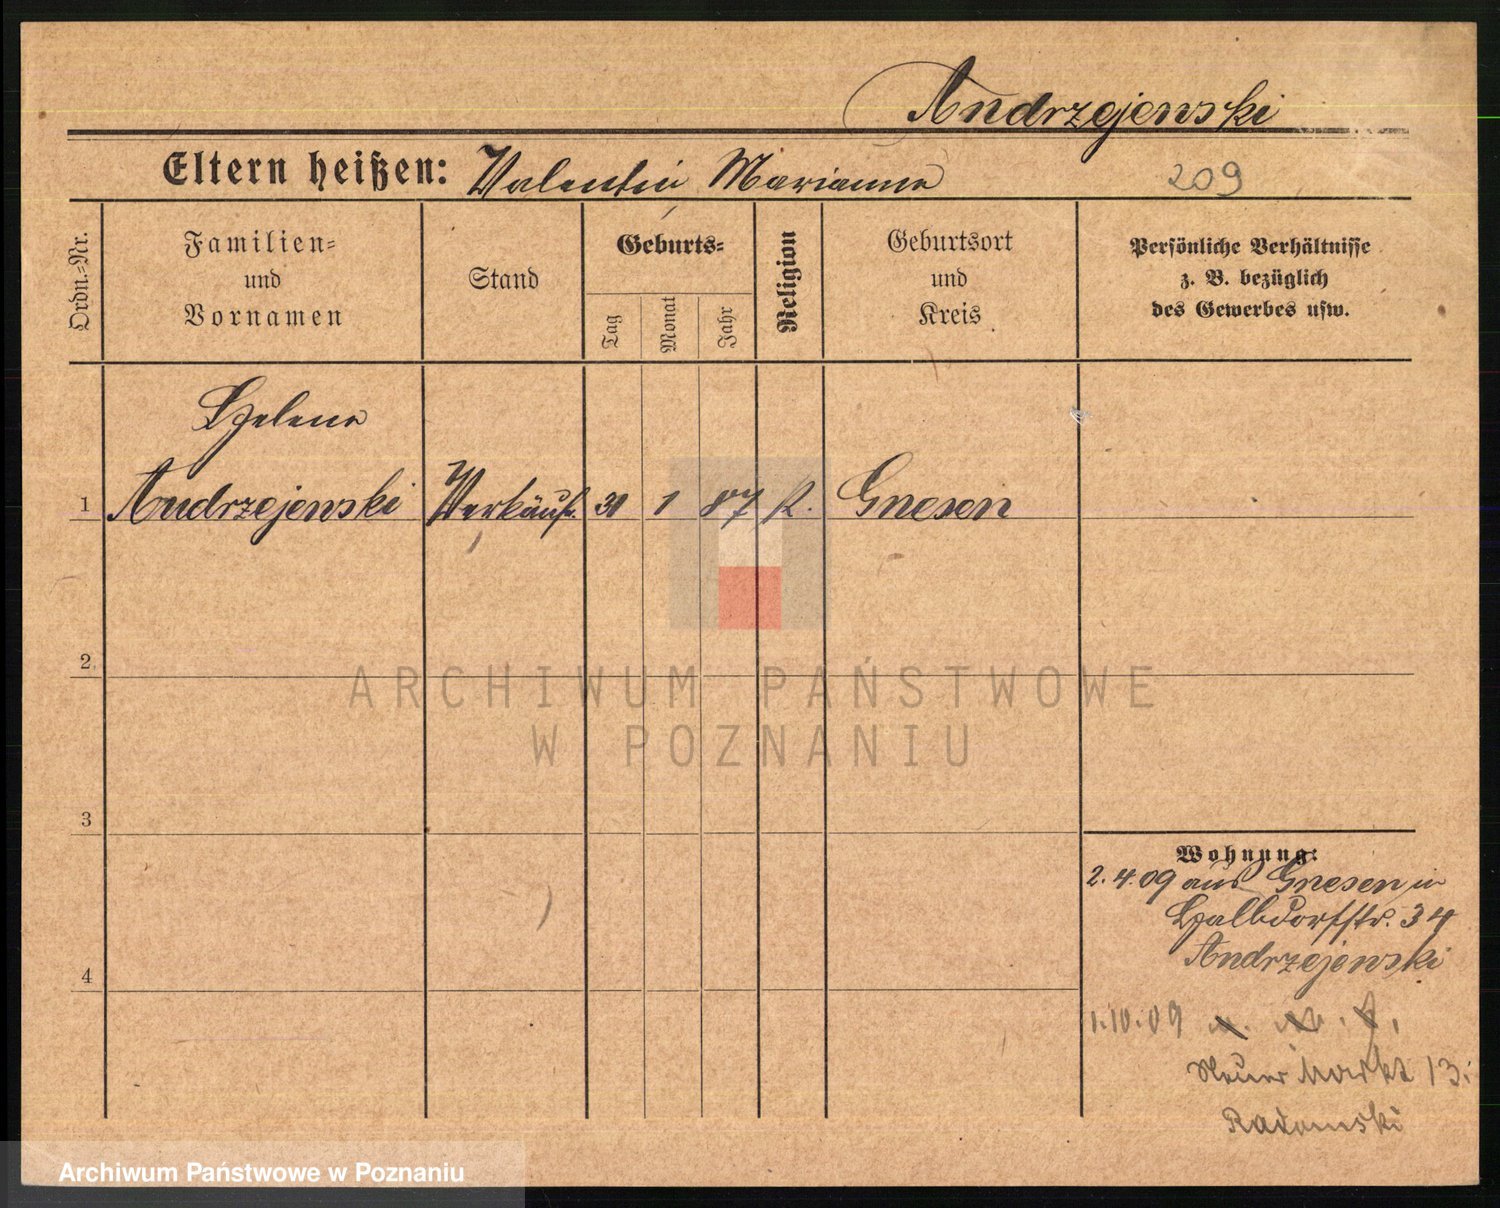 Andrzejewski
Eltern heißen: Valentin Marianna
209
Ordn.=Nr.
Familien=
und
Vornamen
Stand
Geburts=
Tag
Monat
Jahr
Religion
Geburtsort
und
Kreis
Persönliche Verhältnisse
z. B. bezüglich
des Gewerbes usw.
Helena
1 Andrzejewski Verkäuf. 31 1 87 k. Gnesen
2
3
4
Wohnung:
2.4.09 aus Gnesen in
Halbdorfstr. 34
Andrzejewski
1.10.09
Neuer Markt 13.
Radomski
ARCHIWUM PAŃSTWOWE
W POZNANIU
Archiwum Państwowe w Poznaniu